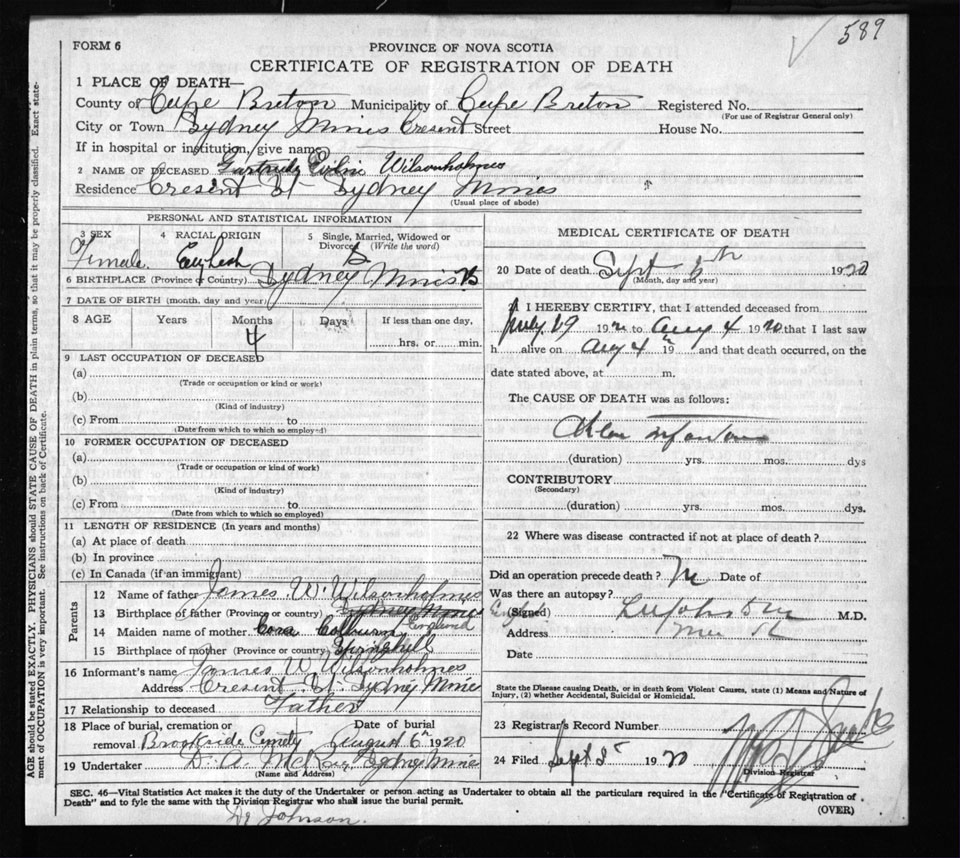 589
FORM 6
PROVINCE OF NOVA SCOTIA
CERTIFICATE OF REGISTRATION OF DEATH
1 PLACE OF DEATH—
County of Cape Breton Municipality of Cape Breton Registered No.
(For use of Registrar General only)
City or Town Sydney Mines Cresent Street House No.
If in hospital or institution, give name
2 NAME OF DECEASED Wilsonholmes
Residence Cresent St Sydney Mines
(Usual place of abode)
PERSONAL AND STATISTICAL INFORMATION
3 SEX 4 RACIAL ORIGIN 5 Single, Married, Widowed or Divorced (Write the word)
Female English S
6 BIRTHPLACE (Province or Country) Sydney Mines
7 DATE OF BIRTH (month, day and year)
8 AGE Years Months Days If less than one day,
4 hrs. or min.
9 LAST OCCUPATION OF DECEASED
(a)
(Trade or occupation or kind or work)
(b)
(Kind of industry)
(c) From to
(Date from which to which so employed)
10 FORMER OCCUPATION OF DECEASED
(a)
(Trade or occupation or kind or work)
(b)
(Kind of industry)
(c) From to
(Date from which to which so employed)
11 LENGTH OF RESIDENCE (In years and months)
(a) At place of death
(b) In province
(c) In Canada (if an immigrant)
Parents
12 Name of father James W. Wilsonholmes
13 Birthplace of father (Province or country) Sydney Mines England
14 Maiden name of mother Cora
15 Birthplace of mother (Province or country) Springhill
16 Informant's name James W Wilsonholmes
Address Cresent St Sydney Mines
17 Relationship to deceased Father
18 Place of burial, cremation or removal Date of burial
Brookside August 6th 1920
19 Undertaker D. A. Sydney Mines
(Name and Address)
MEDICAL CERTIFICATE OF DEATH
20 Date of death Sept 1920
(Month, day and year)
21 I HEREBY CERTIFY, that I attended deceased from
July 29 19 to Aug 4 1920 that I last saw
h alive on Aug 4th 19 and that death occurred, on the
date stated above, at m.
The CAUSE OF DEATH was as follows:
(duration) yrs. mos. dys
CONTRIBUTORY
(Secondary)
(duration) yrs. mos. dys.
22 Where was disease contracted if not at place of death?
Did an operation precede death? Date of
Was there an autopsy?
(Signed) M.D.
Address
Date
State the Disease causing Death, or in death from Violent Causes, state (1) Means and Nature of
Injury, (2) whether Accidental, Suicidal or Homicidal.
23 Registrar's Record Number
24 Filed Sept 1920
Division Registrar
SEC. 46—Vital Statistics Act makes it the duty of the Undertaker or person acting as Undertaker to obtain all the particulars required in the "Certificate of Registration of
Death" and to fyle the same with the Division Registrar who shall issue the burial permit.
(OVER)
Dr Johnson.
AGE should be stated EXACTLY. PHYSICIANS should STATE CAUSE OF DEATH in plain terms, so that it may be properly classified. Exact state-
ment of OCCUPATION is very important. See instructions on back of Certificate.